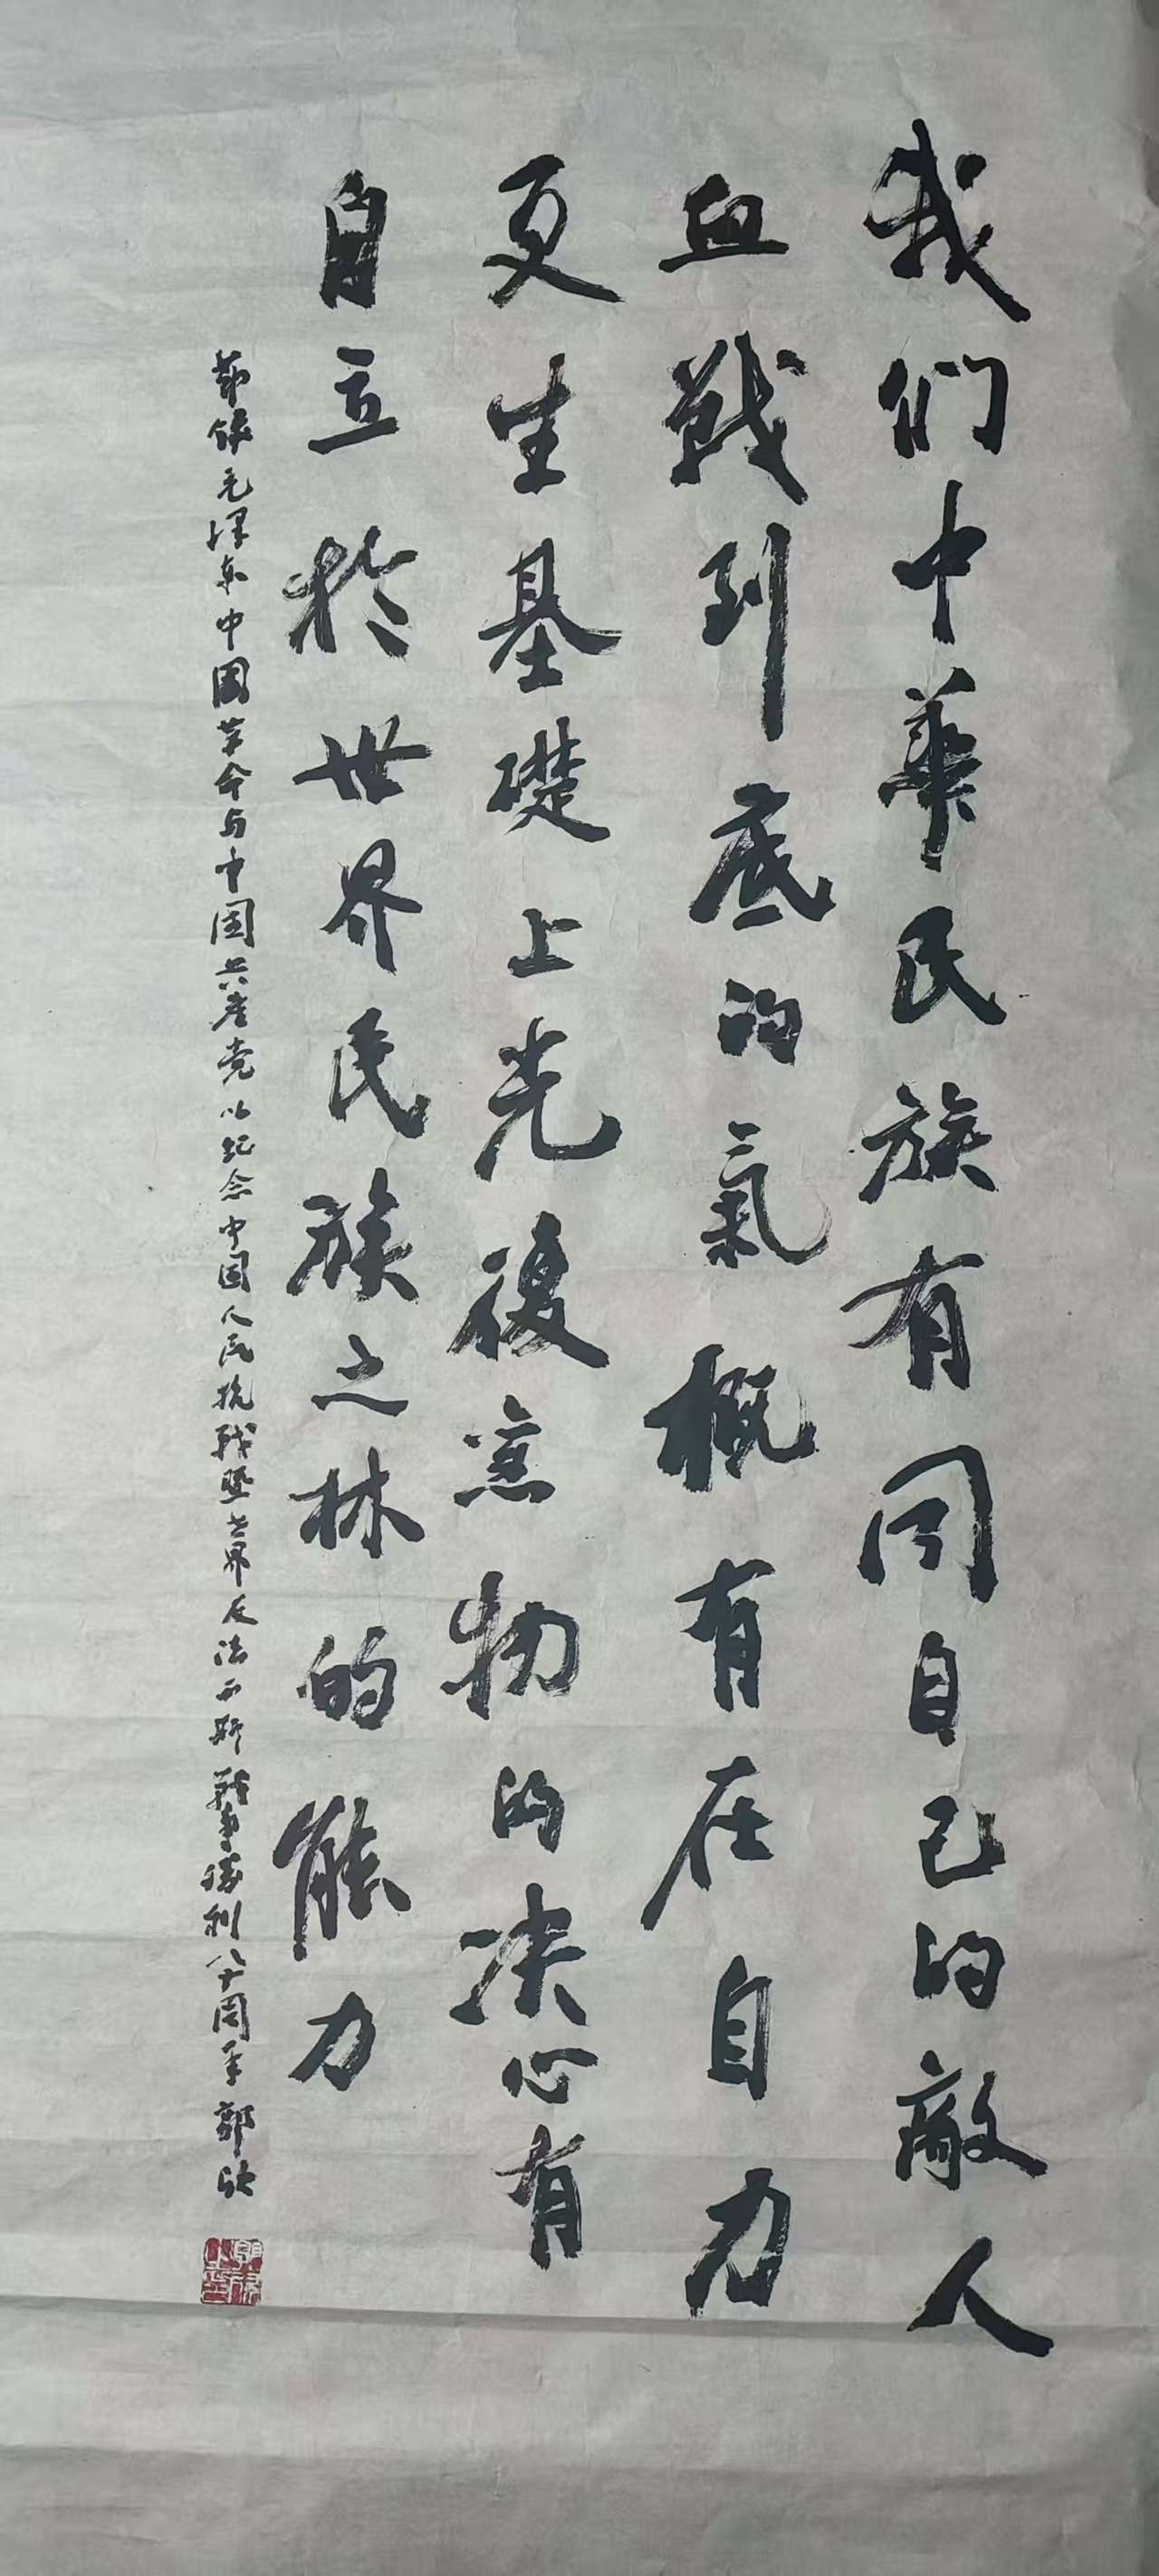 我们中华民族有同自己的敵人
血戰到底的氣概有在自力
更生基礎上光復旧物的决心有
自立於世界民族之林的能力
节錄毛澤东中国革命与中国共产党以纪念中国人民抗战暨世界反法西斯戰争勝利八十周年郭